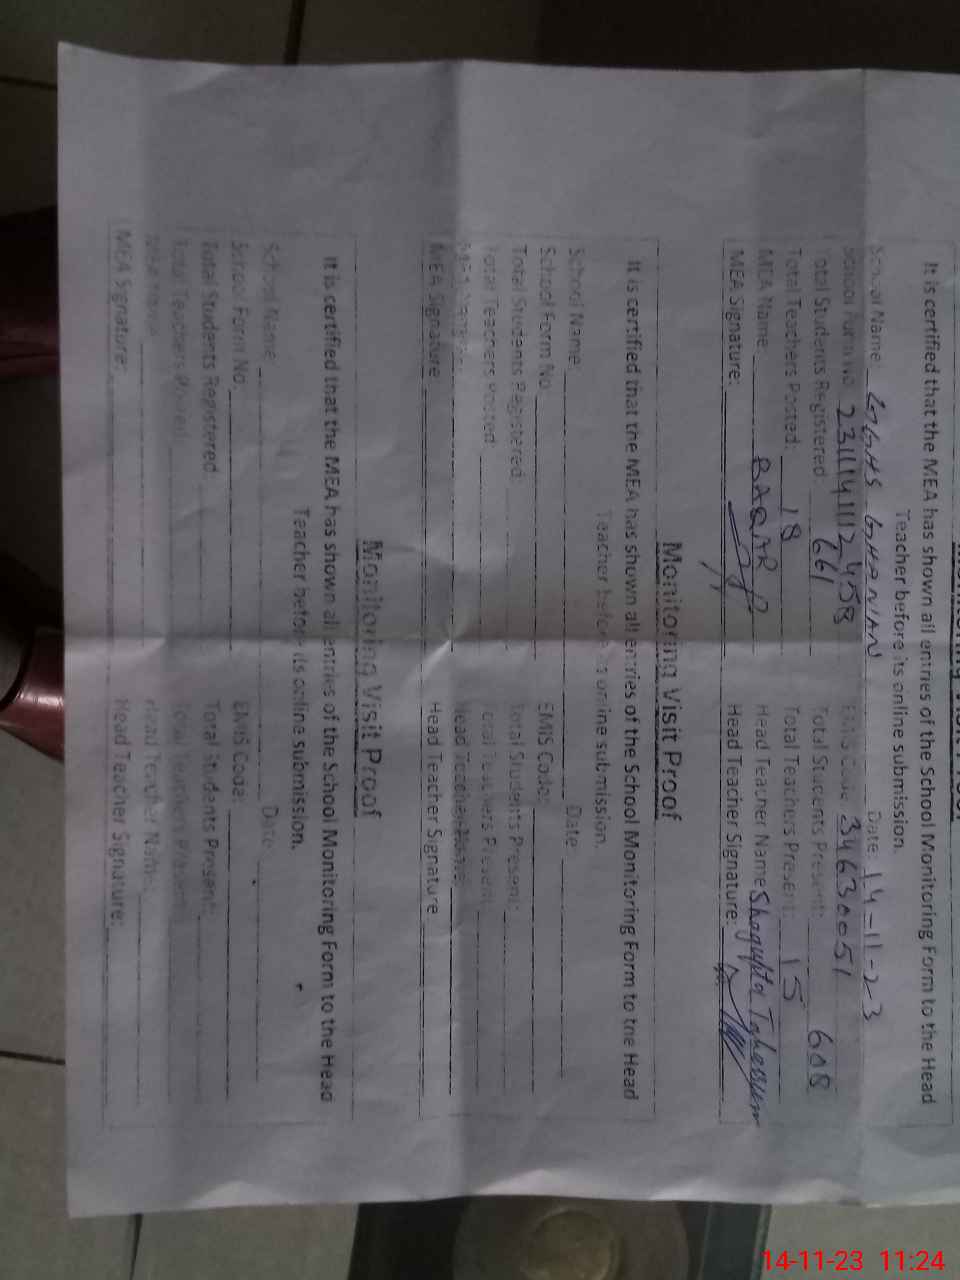 Monitoring Visit Proof
It is certified that the MEA has shown all entries of the School Monitoring Form to the Head
Teacher before its online submission.
School Name: GGHS GHANIAN Date: 14-11-23
School Form No EMIS Code 34630051
Total Students Registered 661 Total Students Present: 608
Total Teachers Posted: 18 Total Teachers Present: 15
MEA Name: BAQAR Head Teacher Name Shagufta Tabassum
MEA Signature: Head Teacher Signature:
Monitoring Visit Proof
It is certified that the MEA has shown all entries of the School Monitoring Form to the Head
Teacher before its online submission.
School Name Date:
School Form No EMIS Code:
Total Students Registered: Total Students Present:
Total Teachers Posted Total Teachers Present:
MEA Name: Head Teacher Name:
MEA Signature Head Teacher Signature
Monitoring Visit Proof
It is certified that the MEA has shown all entries of the School Monitoring Form to the Head
Teacher before its online submission.
School Name: Date
School Form No. EMIS Code:
Total Students Registered Total Students Present:
Total Teachers Posted: Total Teachers Present
MEA Name Head Teacher Name:
MEA Signature: Head Teacher Signature:
14-11-23 11:24